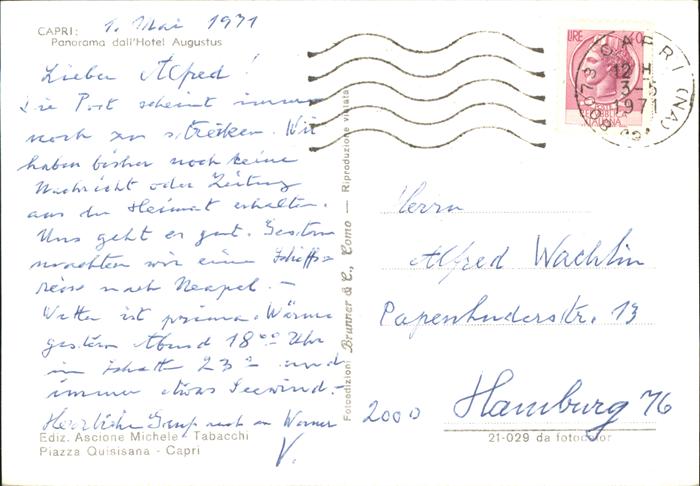 CAPRI:
Panorama dall'Hotel Augustus
1. Mai 1971
Lieber Alfred!
Die Post scheint immer
noch zu streiken. Wir
haben bisher noch keine
Nachricht oder Zeitung
aus der Heimat erhalten.
Uns geht es gut. Gestern
machten wir eine Schiffs=
reise nach Neapel. —
Wetter ist prima. Wärme
gestern Abend 18°° Uhr
im Schatten 23° und
immer etwas Seewind. -
Herzliche Grüße auch an Werner
V.
Ediz. Ascione Michele - Tabacchi
Piazza Quisisana - Capri
Fotoedizioni Brunner & C., Como — Riproduzione vietata
LIRE 40
REPUBBLICA
ITALIANA
CAPRI (NA)
12 H
3-5
1971
80073
Herrn
Alfred Wachlin
Papenhuderstr. 13
2000 Hamburg 76
21-029 da fotocolor